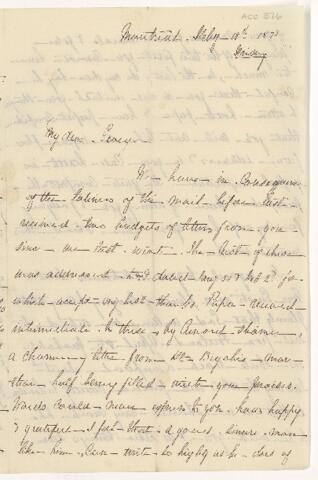 ACC 576
Montreal. 18th 1871
Sunday
My dear George
We have in consequence
of the lateness of the mail before last
received two budgets of letters from you
since we last wrote. The first of these
was addressed dated Jan 31 & Feb 2d for
which accept my best thanks. Papa received
intermediate to these by
a charming letter from Mr more
than half being filled with your praises.
Words could never express to you how happy
& gratified I feel that a good, sincere man
like him, can write so highly as he does of